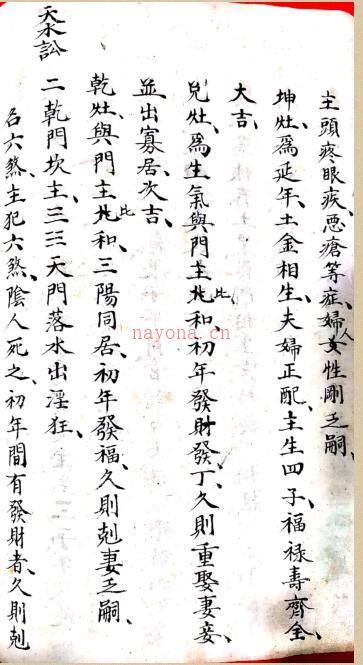 主頭疼眼疾惡瘡等症、婦人女性剛乏嗣、
坤灶、爲延年、土金相生、夫婦正配、主生四子、福祿壽齊全、
大吉、
兌灶、爲生氣與門主比和初年發財發丁、久則重娶妻妾、
並出寡居、次吉、
乾灶、與門主比和、三陽同居、初年發福、久則剋妻乏嗣、
二乾門坎主、☰☵天門落水出淫狂、
天水訟
名六煞、主犯六煞、陰人死之、初年間有發財者、久則剋
nayona.cn